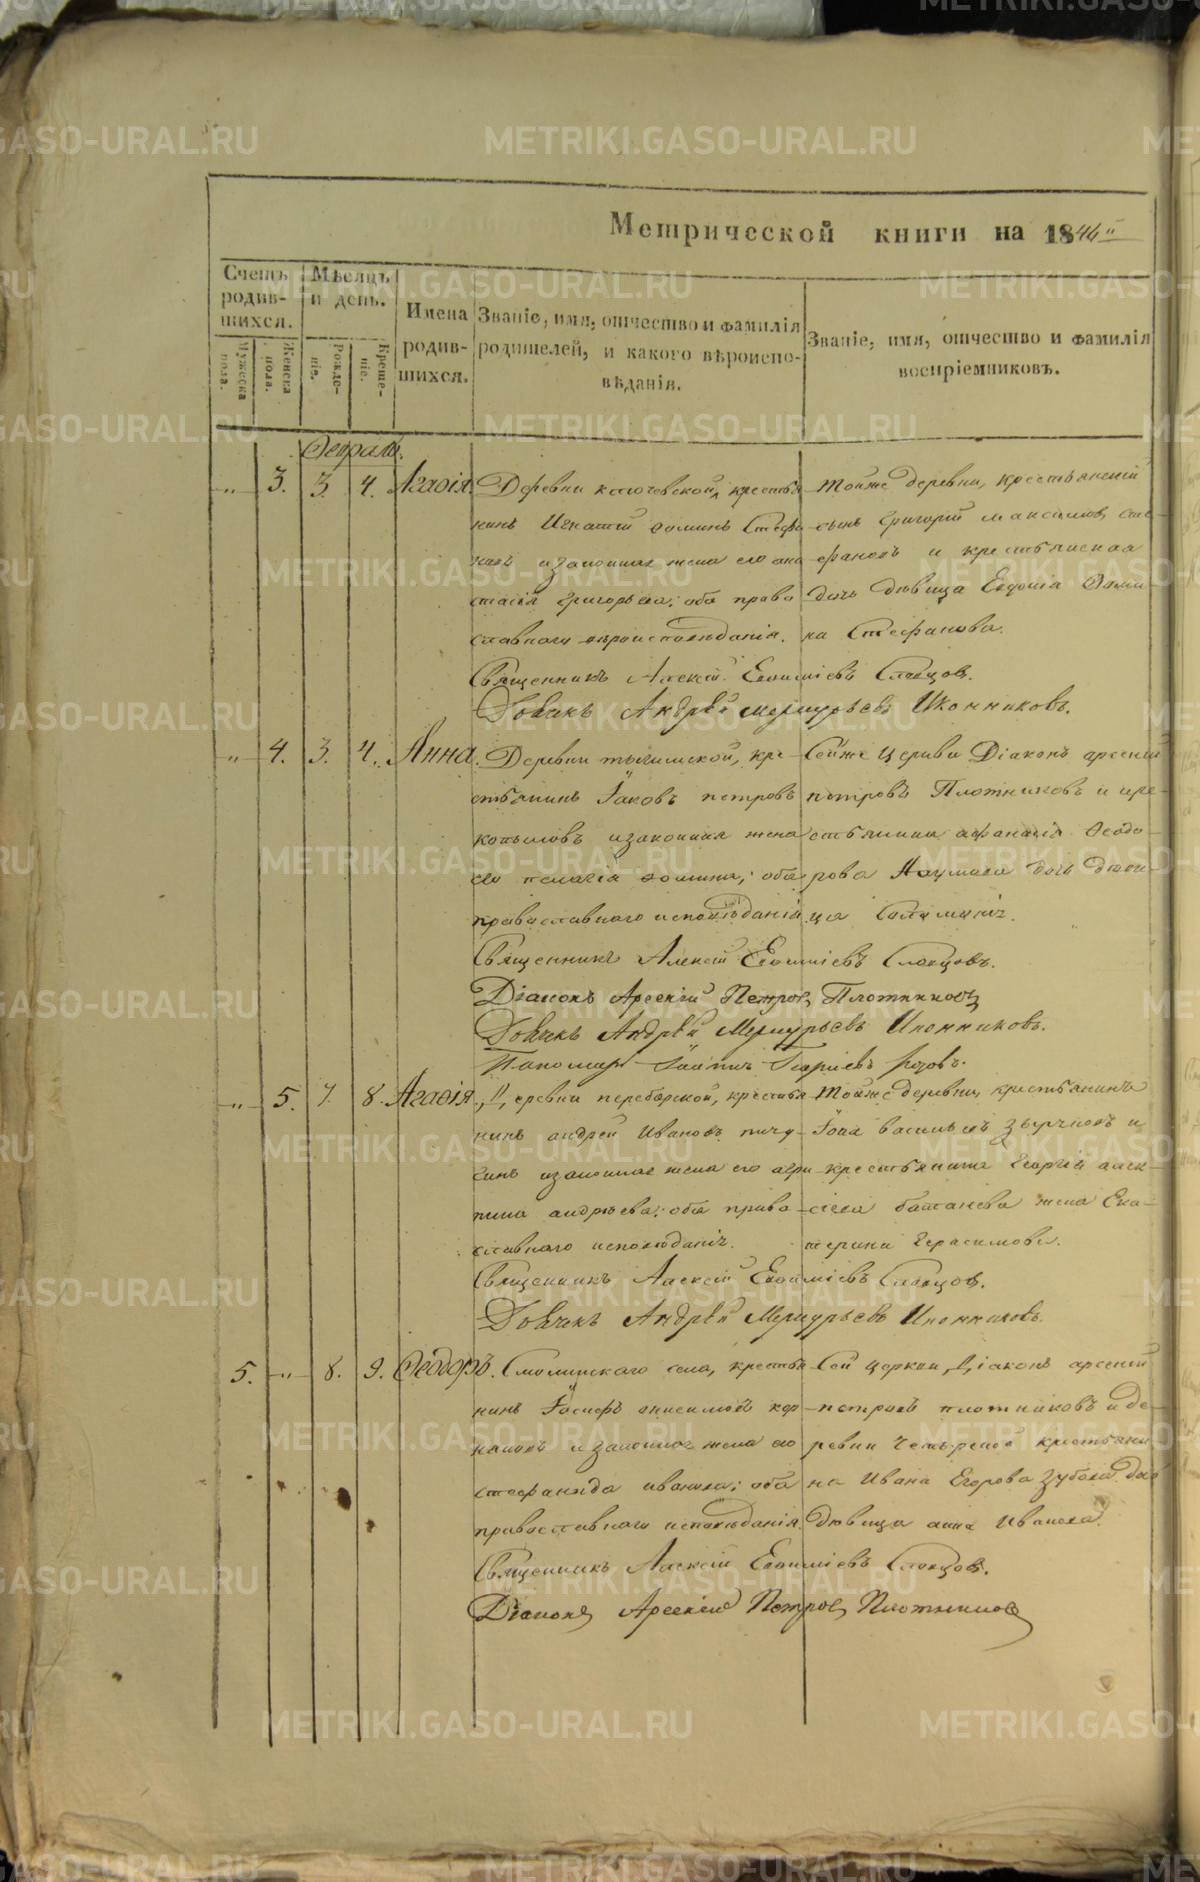 Метрической книги на 1846
Счетъ родив-шихся.
Мужеска пола.
Женска пола.
Мѣсяцъ и день.
Рожде-ніе.
Креще-ніе.
Имена родив-шихся.
Званіе, имя, отчество и фамилія родителей, и какого вѣроиспо-вѣданія.
Званіе, имя, отчество и фамилія воспріемниковъ.
3. 3. 4. Агаѳія. Деревни ключевской, крестья
нинъ Игнатій Ѳоминъ Стефа
новъ и законная жена его ана
стасія Григорьева; оба право
славнаго вѣроисповѣданія.
Тойже деревни, крестьянскій
сынъ Григорій Максимовъ Сте-
фановъ и крестьянская
дочь дѣвица Евдокія Ѳоми
на Стефанова.
Священникъ Алексій Евѳиміевъ Словцовъ.
Дьячекъ Андрей Меркурьевъ Иконниковъ.
4. 3. 4. Анна. Деревни тыгишской, кре-
стьянинъ Іаковъ петровъ
копыловъ и законная жена
его пелагія Ѳомина; оба
православнаго исповѣданія
Сейже Церкви Діаконъ арсеній
петровъ Плотниковъ и кре-
стьянина афанасія Ѳеодо-
рова Наумова дочь дѣви-
ца
Священникъ Алексій Евѳиміевъ Словцовъ.
Діаконъ Арсеній Петровъ Плотниковъ
Дьячекъ Андрей Меркурьевъ Иконниковъ.
Пономарь
5. 7. 8. Агаѳія. Деревни переборской, крестья
нинъ андрей Ивановъ пичу-
гинъ и законная жена его агри
пина андреева; оба право-
славнаго исповѣданія.
Тойже деревни, крестьянинъ
Іона васильевъ и
крестьянина Георгій алек-
сіева баланева жена Ека-
терина Герасимова.
Священникъ Алексій Евѳиміевъ Словцовъ.
Дьячекъ Андрей Меркурьевъ Иконниковъ.
5. 8. 9. Ѳеодоръ. Смолинскаго села, крестья
нинъ Іосифъ онисимовъ кор-
ниловъ и законная жена его
стефанида иванова; оба
православнаго исповѣданія.
Сей церкви, Діаконъ арсеній
петровъ плотниковъ и де-
ревни крестьяни
на Ивана Егорова Зубова дочь
дѣвица анна Иванова.
Священникъ Алексій Евѳиміевъ Словцовъ.
Діаконъ Арсеній Петровъ Плотниковъ
METRIKI.GASO-URAL.RU